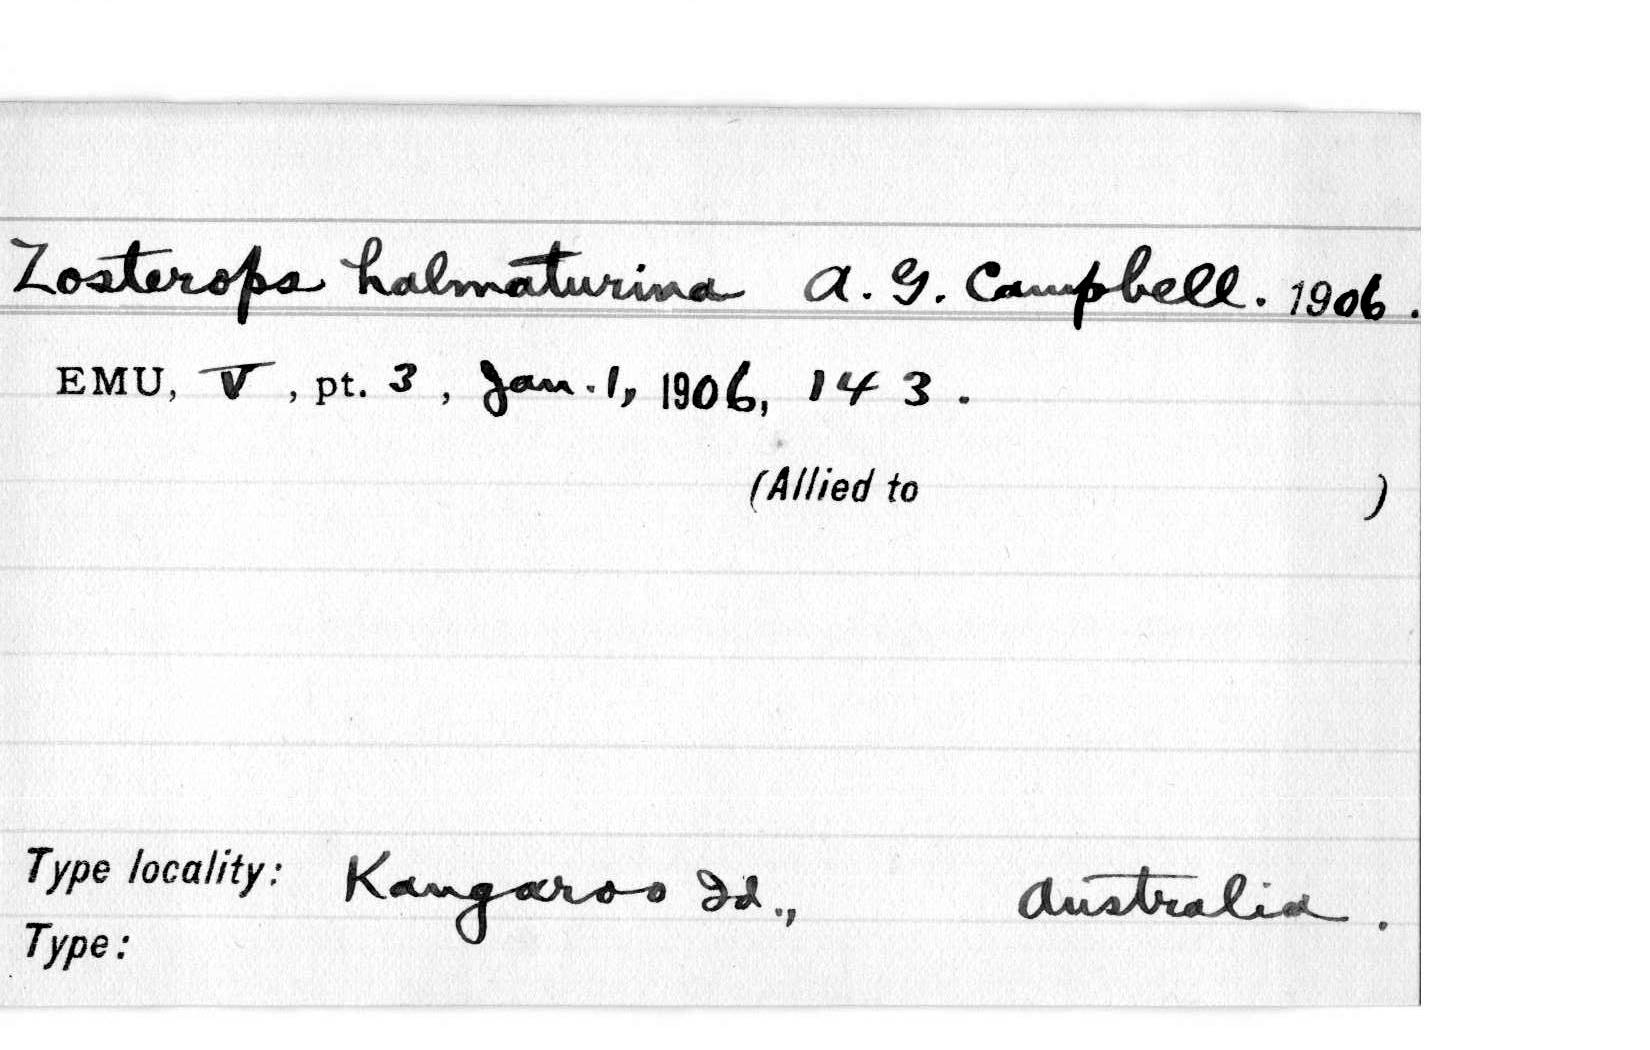 Zosterops halmaturina A. G. Campbell. 1906.
EMU, V, pt. 3, Jan. 1, 1906, 143.
(Allied to )
Type locality: Kangaroo Id., Australia.
Type: